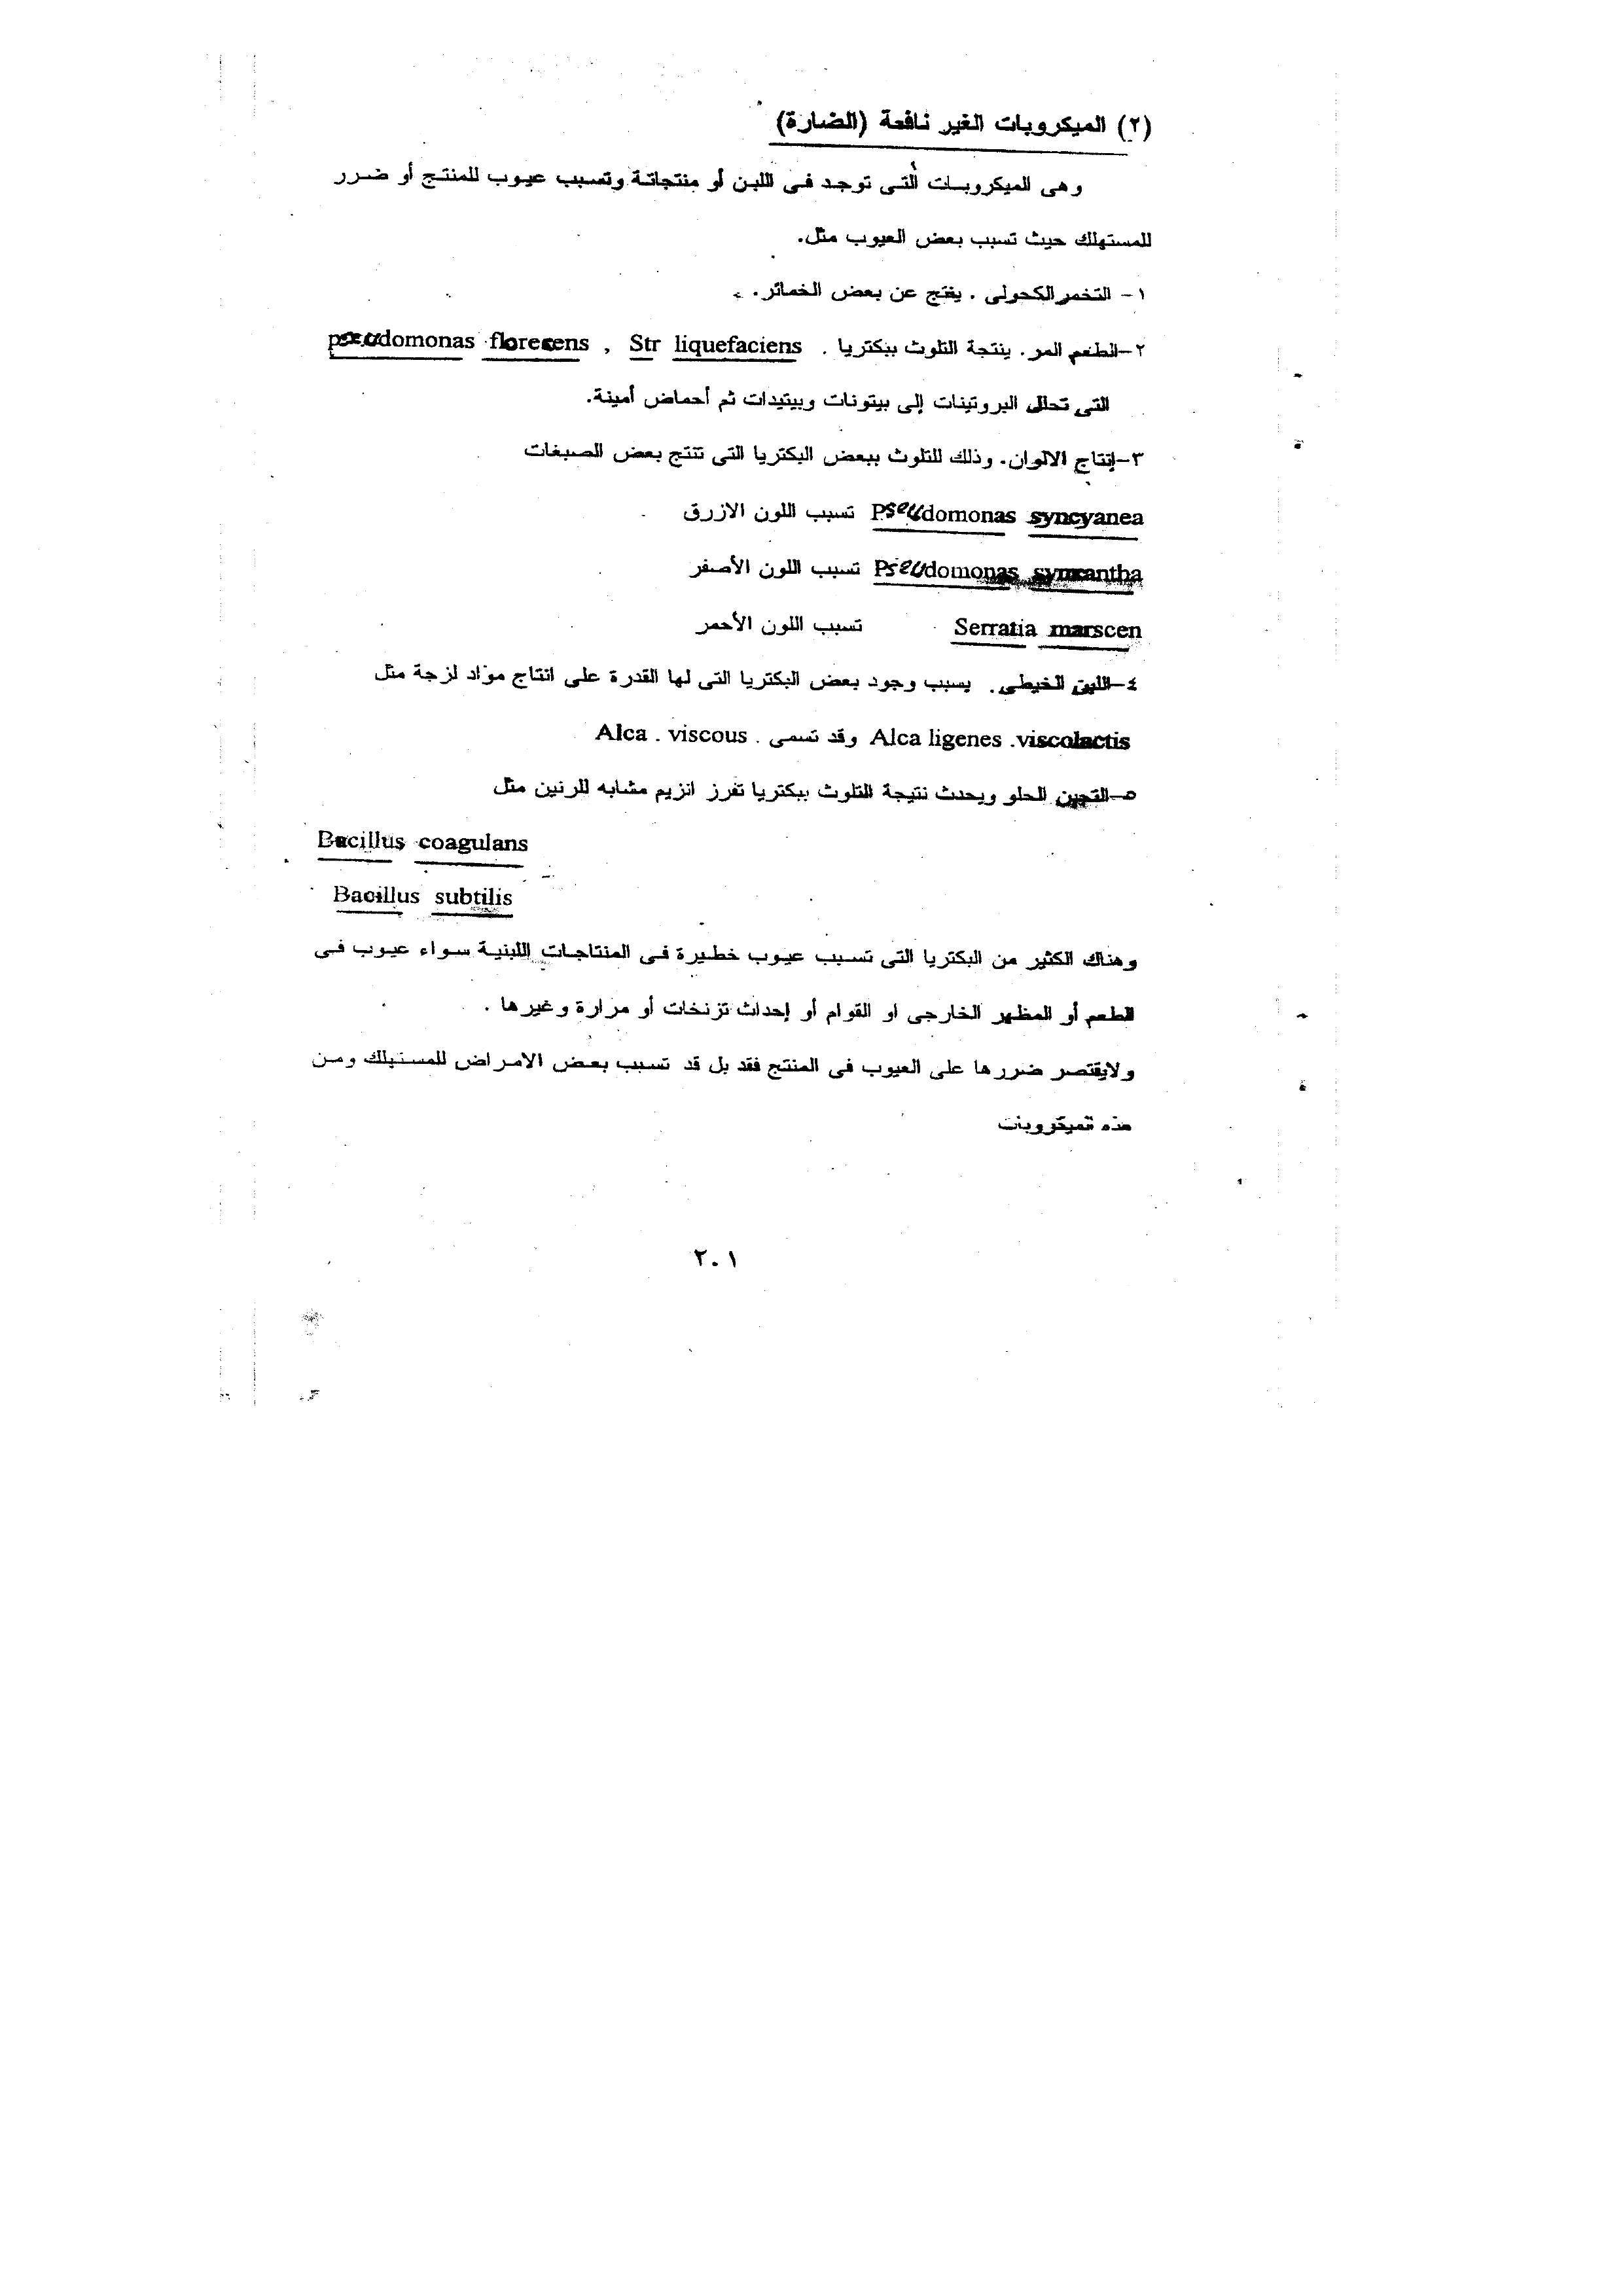 (٢) الميكروبات الغير نافعة (الضارة)
وهى الميكروبات التى توجد فى اللبن أو منتجاتة وتسبب عيوب للمنتج أو ضرر
للمستهلك حيث تسبب بعض العيوب مثل.
١- التخمر الكحولى . ينتج عن بعض الخمائر.
٢-الطعم المر. ينتجة التلوث ببكتريا . pseudomonas florecens , Str liquefaciens
التى تحلل البروتينات إلى بيتونات وبيتيدات ثم أحماض أمينة.
٣-إنتاج الالوان. وذلك للتلوث ببعض البكتريا التى تنتج بعض الصبغات
Pseudomonas syncyanea تسبب اللون الازرق
Pseudomonas syncantha تسبب اللون الأصفر
Serratia marscen تسبب اللون الأحمر
٤-اللبن الخيطى. يسبب وجود بعض البكتريا التى لها القدرة على انتاج مواد لزجة مثل
Alca ligenes .viscolactis وقد تسمى . Alca . viscous
٥-التجبن الحلو ويحدث نتيجة التلوث ببكتريا تفرز انزيم مشابه للرنين مثل
Bacillus coagulans
Bacillus subtilis
وهناك الكثير من البكتريا التى تسبب عيوب خطيرة فى المنتاجات اللبنية سواء عيوب فى
الطعم أو المظهر الخارجى او القوام أو إحداث تزنخات أو مرارة وغيرها .
ولايقتصر ضررها على العيوب فى المنتج فقد بل قد تسبب بعض الامراض للمستهلك ومن
هذه الميكروبات
٢٠١